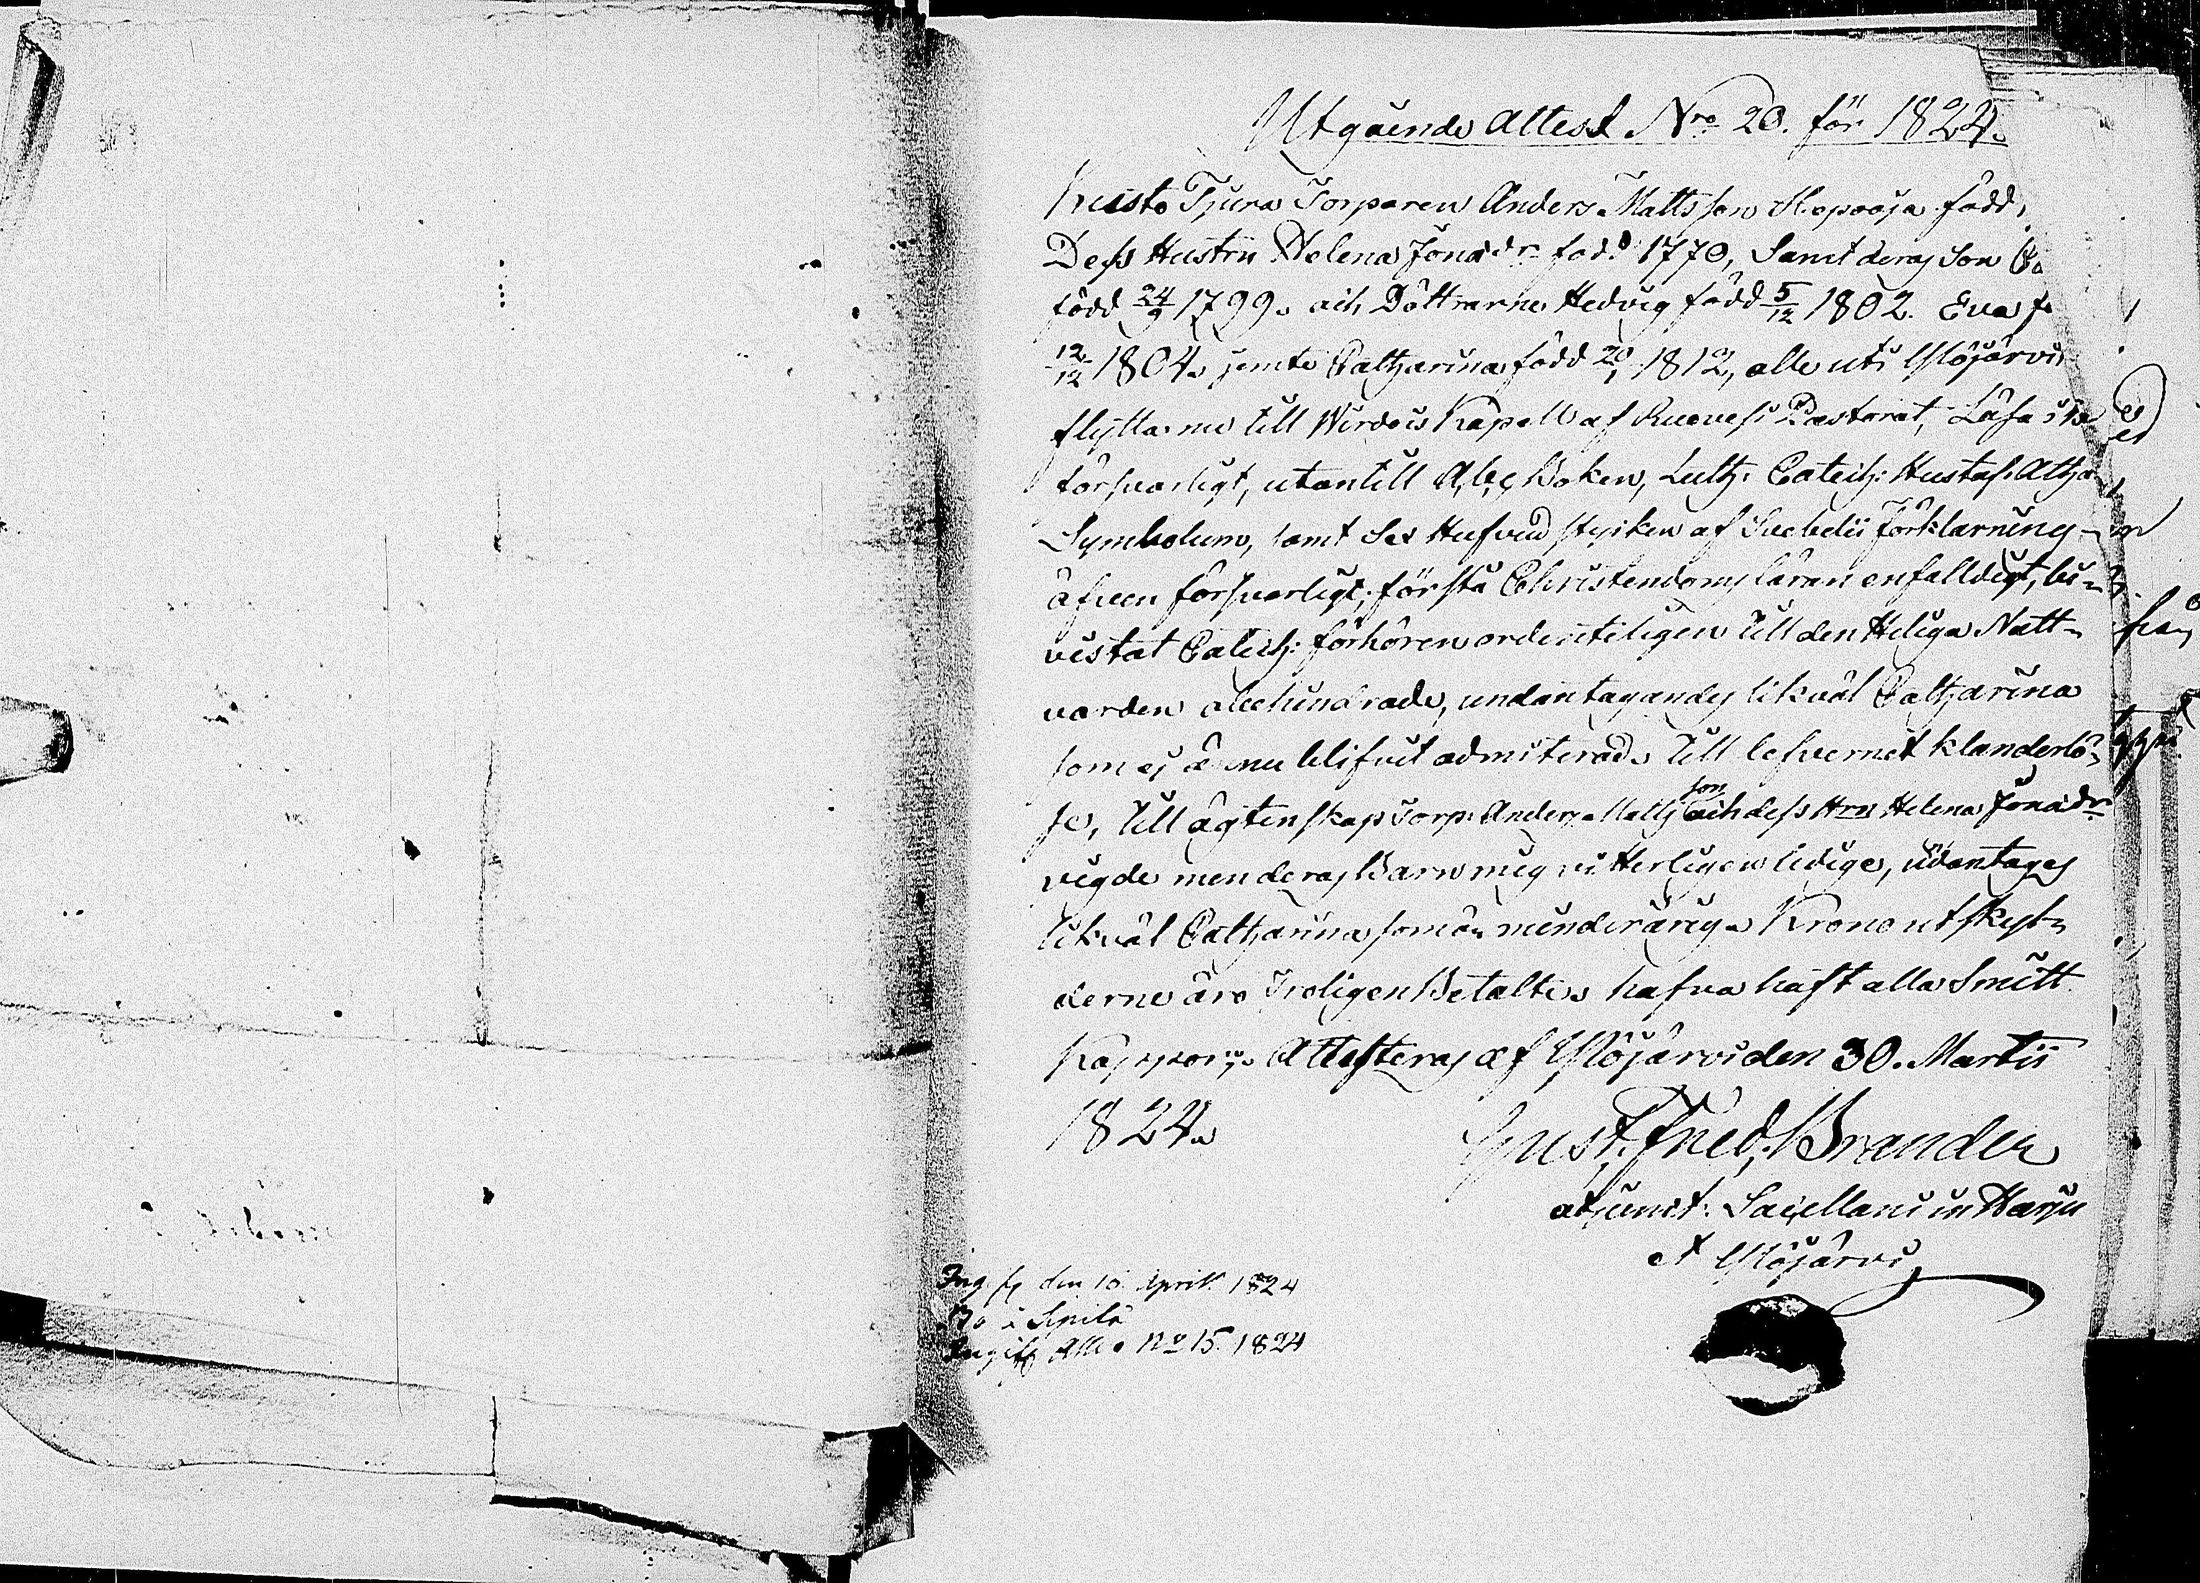 Utgående Attest Nro 20. för 1824.
Kusto Tjura Torparen Anders Mattsson född,
Dess Hustru Helena Jonædr född 1770, samt deras Son
född 24/9 1799. och Döttrarne Hedvig född 5/12 1802. Eva
12/12 1804. jemte Catharina född 20/1 1812, alle uti Ylöjärvi
flytta nu till Wirdois Kapell af Ruovesi Pastorat, Läsa
försvarligt, utantill Abc Boken, Luth: Catech: Hustaf. Atha
Symbolum, samt Sex Hufvud stycken af Svebelii Förklarning
äfven försvarligt; förstå Christendoms läran enfalldigt, bi-
vistat Catech: förhören ordenteligen Till den Heliga Natt-
varden obehindrade, undantagandes likväl Catharina
som ej ännu blifvit admiterad. Till lefvernet klanderlö-
se, Till ägtenskap Torp: Anders Matts son och dess Hru Helena Jonædr
vigde men deras Barn mig vitterligen ledige, udantages
likväl Catharina som är minderårig. Krono utskyl-
derne äro Troligen Betalte. hafva haft alla Smitt
Kopporne. Attesteras af Ylöjärvi den 30. Martii
1824.
Gust. Fred. Brander
adjunct. Sacellani in Harju
et Ylöjärvi
den 10 April 1824
Bo i
No 15. 1824